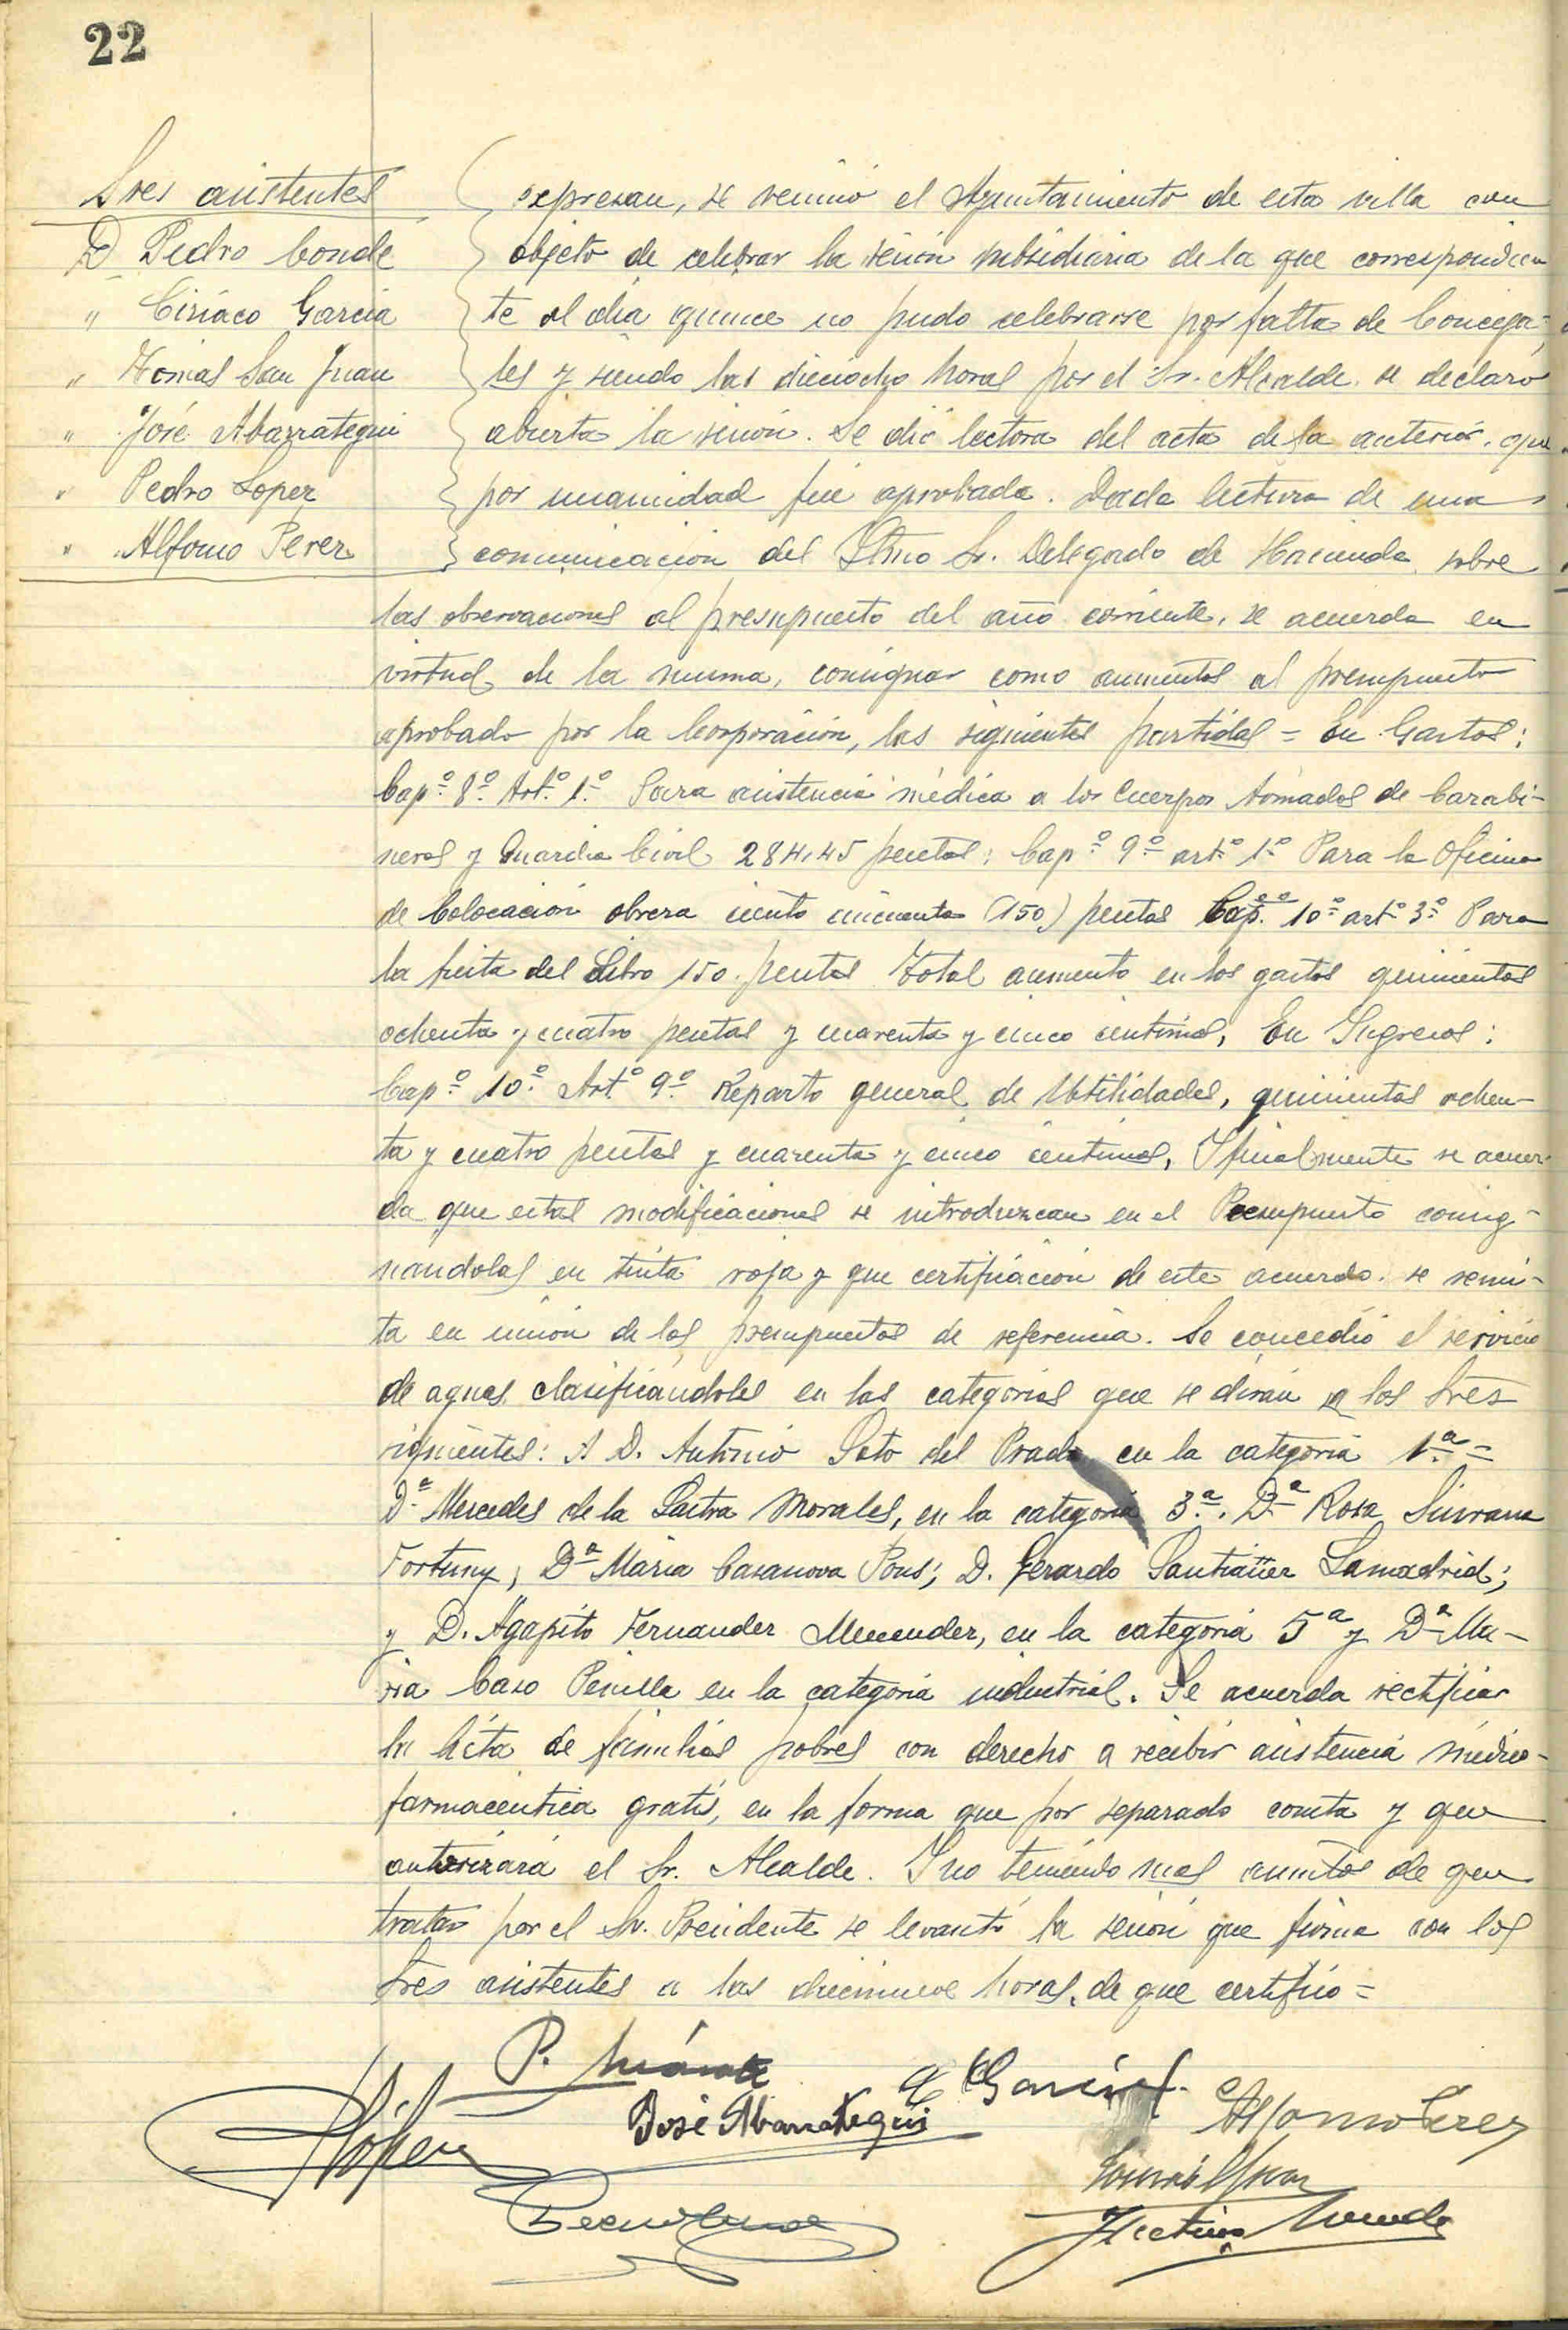 22
Sres asistentes
D Pedro Conde
" Ciriaco García
" Tomas San Juan
" José Abarrategui
" Pedro Lopez
" Alfonso Pérez
expresan, se reunió el Ayuntamiento de esta villa con
objeto de celebrar la sesión subsidiaria de la que correspondien
te al día quince no pudo celebrarse por falta de Conceja-
les y siendo las dieciocho horas por el Sr. Alcalde se declaró
abierta la sesión. Se dió lectora del acta de la anterior, que
por unanimidad fué aprobada. Dada lectura de una
comunicación del Iltmo Sr. Delegado de Hacienda sobre
las observaciones al presupuesto del año corriente, se acuerda en
virtud de la misma, consignar como aumentos al presupuesto
aprobado por la Corporación, las siguientes partidas = En Gastos:
Capº 8º Artº 1º Para asistencia médica a los Cuerpos Armados de Carabi-
neros y Guardia Civil 284,45 pesetas; Capº 9º artº 1º Para la Oficina
de Colocación obrera ciento cincuenta (150) pesetas Cap. 10º artº 3º Para
la fiesta del Libro 150 pesetas Total aumento en los gastos quinientas
ochenta y cuatro pesetas y cuarenta y cinco centimos, En Ingresos:
Capº 10º Artº 9º Reparto general de Utilidades, quinientas ochen-
ta y cuatro pesetas y cuarenta y cinco centimos, Y finalmente se acuer-
da que estas modificaciones se introduzcan en el Presupuesto consig-
nandolas en tinta roja y que certificación de este acuerdo se remi-
ta en unión de los presupuestos de referencia. Se concedió el servicio
de aguas clasificándoles en las categorias que se dirán a los Sres
siguientes: A D. Antonio Soto del Prado en la categoria 1ª =
Dª Mercedes de la Lastra Morales, en la categoria 3ª. Dª Rosa Siurana
Fortuny; Dª María Casanova Pons; D. Gerardo Santiañez Lamadrid;
y D. Agapito Fernandez Menendez, en la categoria 5ª y Dª Ma-
ria Caso Penilla en la categoria industrial. Se acuerda rectificar
la lista de familias pobres con derecho a recibir asistencia médico-
farmaceutica gratis, en la forma que por separado consta y que
autorizará el Sr. Alcalde. Y no teniendo mas asuntos de que
tratar por el Sr. Presidente se levantó la sesión que firma con los
Sres asistentes a las diecinueve horas, de que certifico =
P.
C García
José Abarrategui
Alfonso Pérez
López